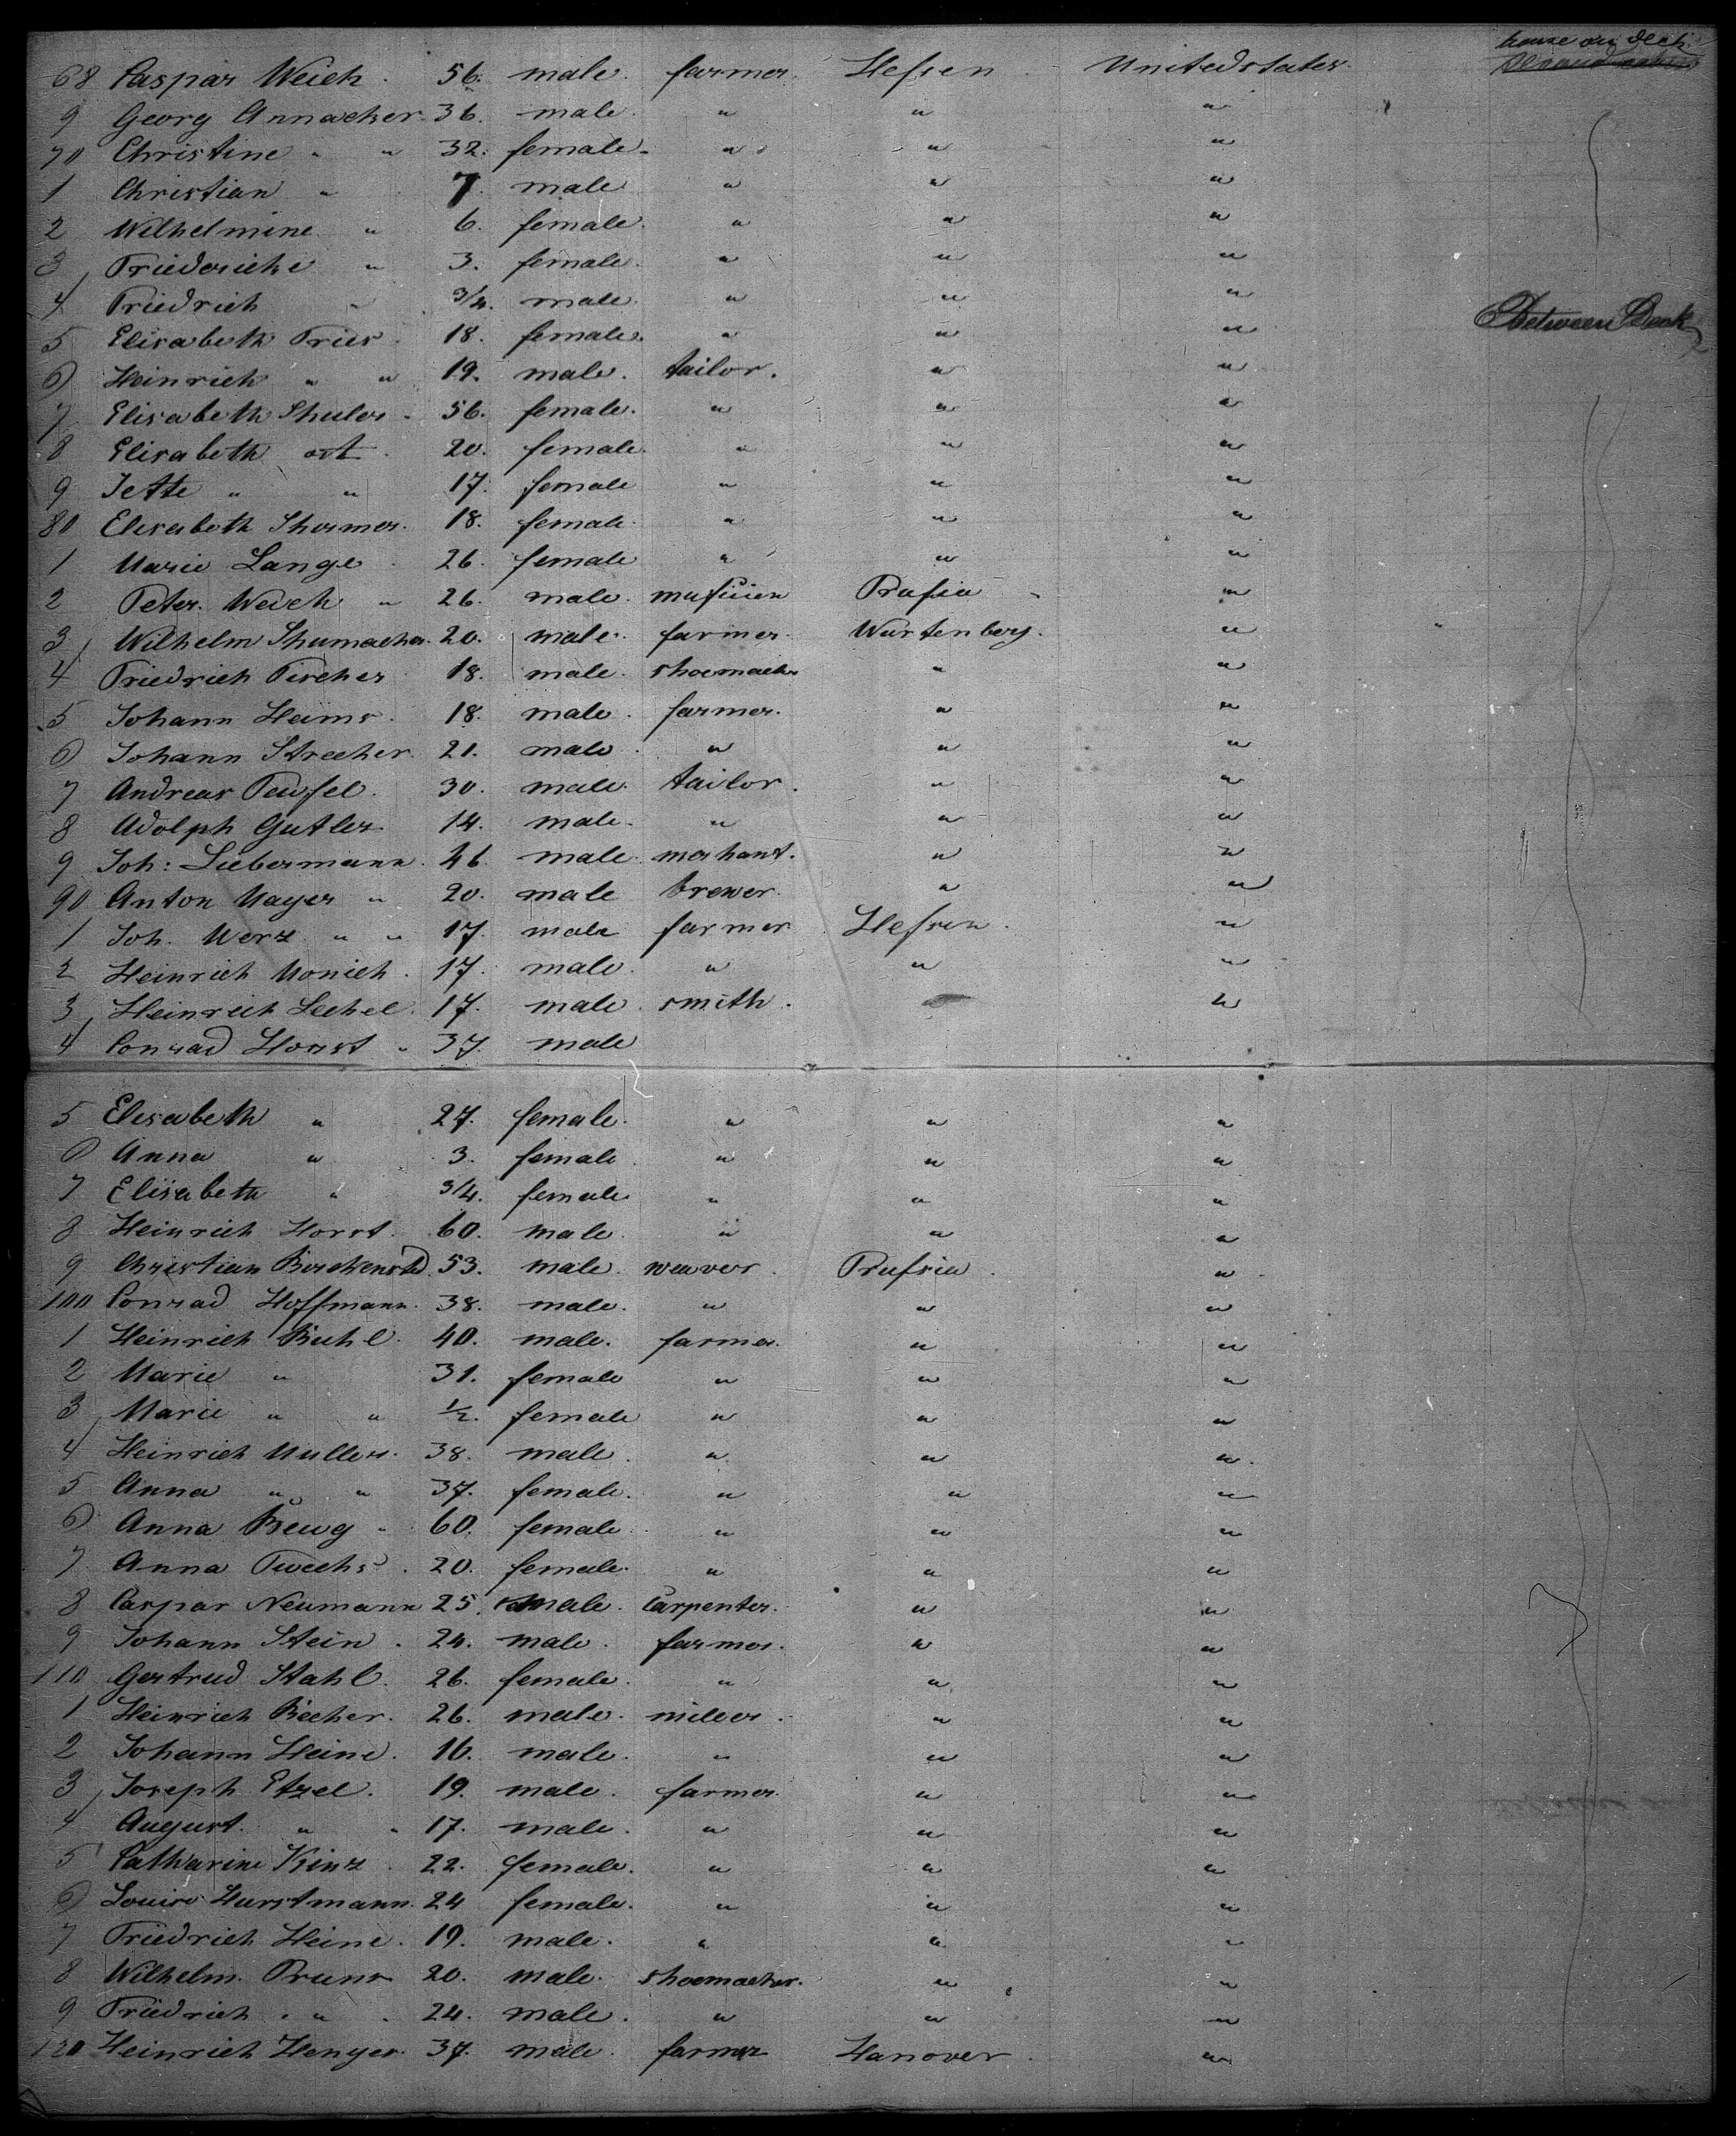 house on deck
68 Caspar Weich . 56. male. farmer. Hessen . Unitedstates.
9 Georg Annacker 36. male. " " "
70 Christine " " 32. female. " " "
1 Christian " 7. male " " "
2 Wilhelmine " 6. female. " " "
3 Friedericke " 3. female. " " "
4 Friedrich " 3/4. male. " " "
Between Deck
5 Elisabeth Fries . 18. female. " " "
6 Heinrich " " 19. male. tailor. " "
7 Elisabeth Shuler . 56. female. " " "
8 Elisabeth ost . 20. female. " " "
9 Jette " " 17. female " " "
80 Elisabeth Shirmer. 18. female. " " "
1 Marie Lange . 26. female " " "
2 Peter. Weich " 26. male. musicien Prussia "
3 Wilhelm Shumacher. 20. male. farmer. Wurtenberg. "
4 Friedrich Fischer 18. male. shoemacker " "
5 Johann Heims . 18. male. farmer. " "
6 Johann Strecker. 21. male . " " "
7 Andreas Teufel. 30. male. tailor. " "
8 Adolph Gutler 14. male. " " "
9 Joh: Liebermann. 46. male. merhant. " "
90 Anton Mayer " 20. male brewer. " "
1 Joh. Werz " " 17. male farmer Hessen. "
2 Heinrich Monich . 17. male. " " "
3 Heinrich Lechel. 17. male. smith. "
4 Conrad Horst " 37. male
5 Elisabeth " 27. female. " " "
6 Anna " 3. female " " "
7 Elisabeth " 3/4. female " " "
8 Heinrich Horst . 60. male. " " "
9 Christian 53. male. weaver. Prussia . "
100 Conrad Hoffmann. 38. male. " " "
1 Heinrich Buhl. 40. male. farmer. " "
2 Marie " 31. female " " "
3 Marie " " 1/2. female " " "
4 Heinrich Muller. 38. male. " " "
5 Anna " " 37. female. " " "
6 Anna 60. female " " "
7 Anna 20. female. " " "
8 Caspar Neumann 25. male. Carpenter. " "
9 Johann Stein . 24. male. farmer. " "
110 Gertrud Stahl. 26. female. " " "
1 Heinrich Becker. 26. male. miller. " "
2 Johann Heine . 16. male. " " "
3 Joseph Etzel. 19. male. farmer. " "
4 August. " " 17. male. " " "
5 Catharine Kinz . 22. female. " " "
6 Louise Hurstmann. 24 female. " " "
7 Friedrich Heine . 19. male. " " "
8 Wilhelm. Pruns 20. male. shoemacker. " "
9 Friedrich " " 24. male. " " "
120 Heinrich Henyer. 37. male. farmer Hanover. "